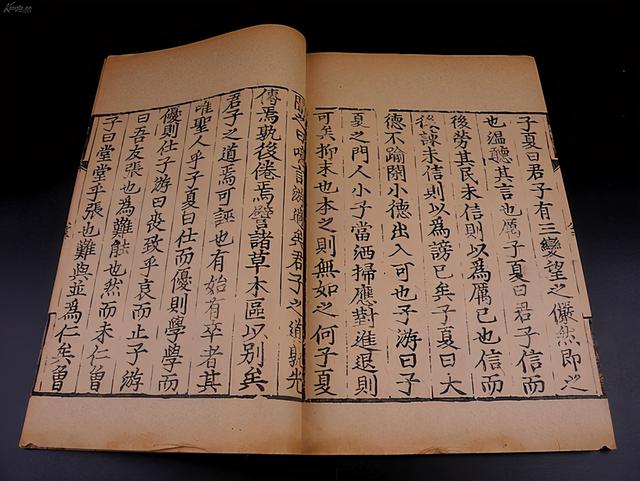 子夏曰君子有三變望之儼然即之
也温聽其言也厲子夏曰君子信而
後勞其民未信則以為厲已也信而
後諫未信則以為謗已矣子夏曰大
德不踰閑小德出入可也子游曰子
夏之門人小子當洒掃應對進退則
可矣抑末也本之則無如之何子夏
聞之曰噫言游過矣君子之道孰先
傳焉孰後倦焉譬諸草木區以別矣
君子之道焉可誣也有始有卒者其
唯聖人乎子夏曰仕而優則學學而
優則仕子游曰喪致乎哀而止子游
曰吾友張也為難能也然而未仁曾
子曰堂堂乎張也難與並為仁矣曾